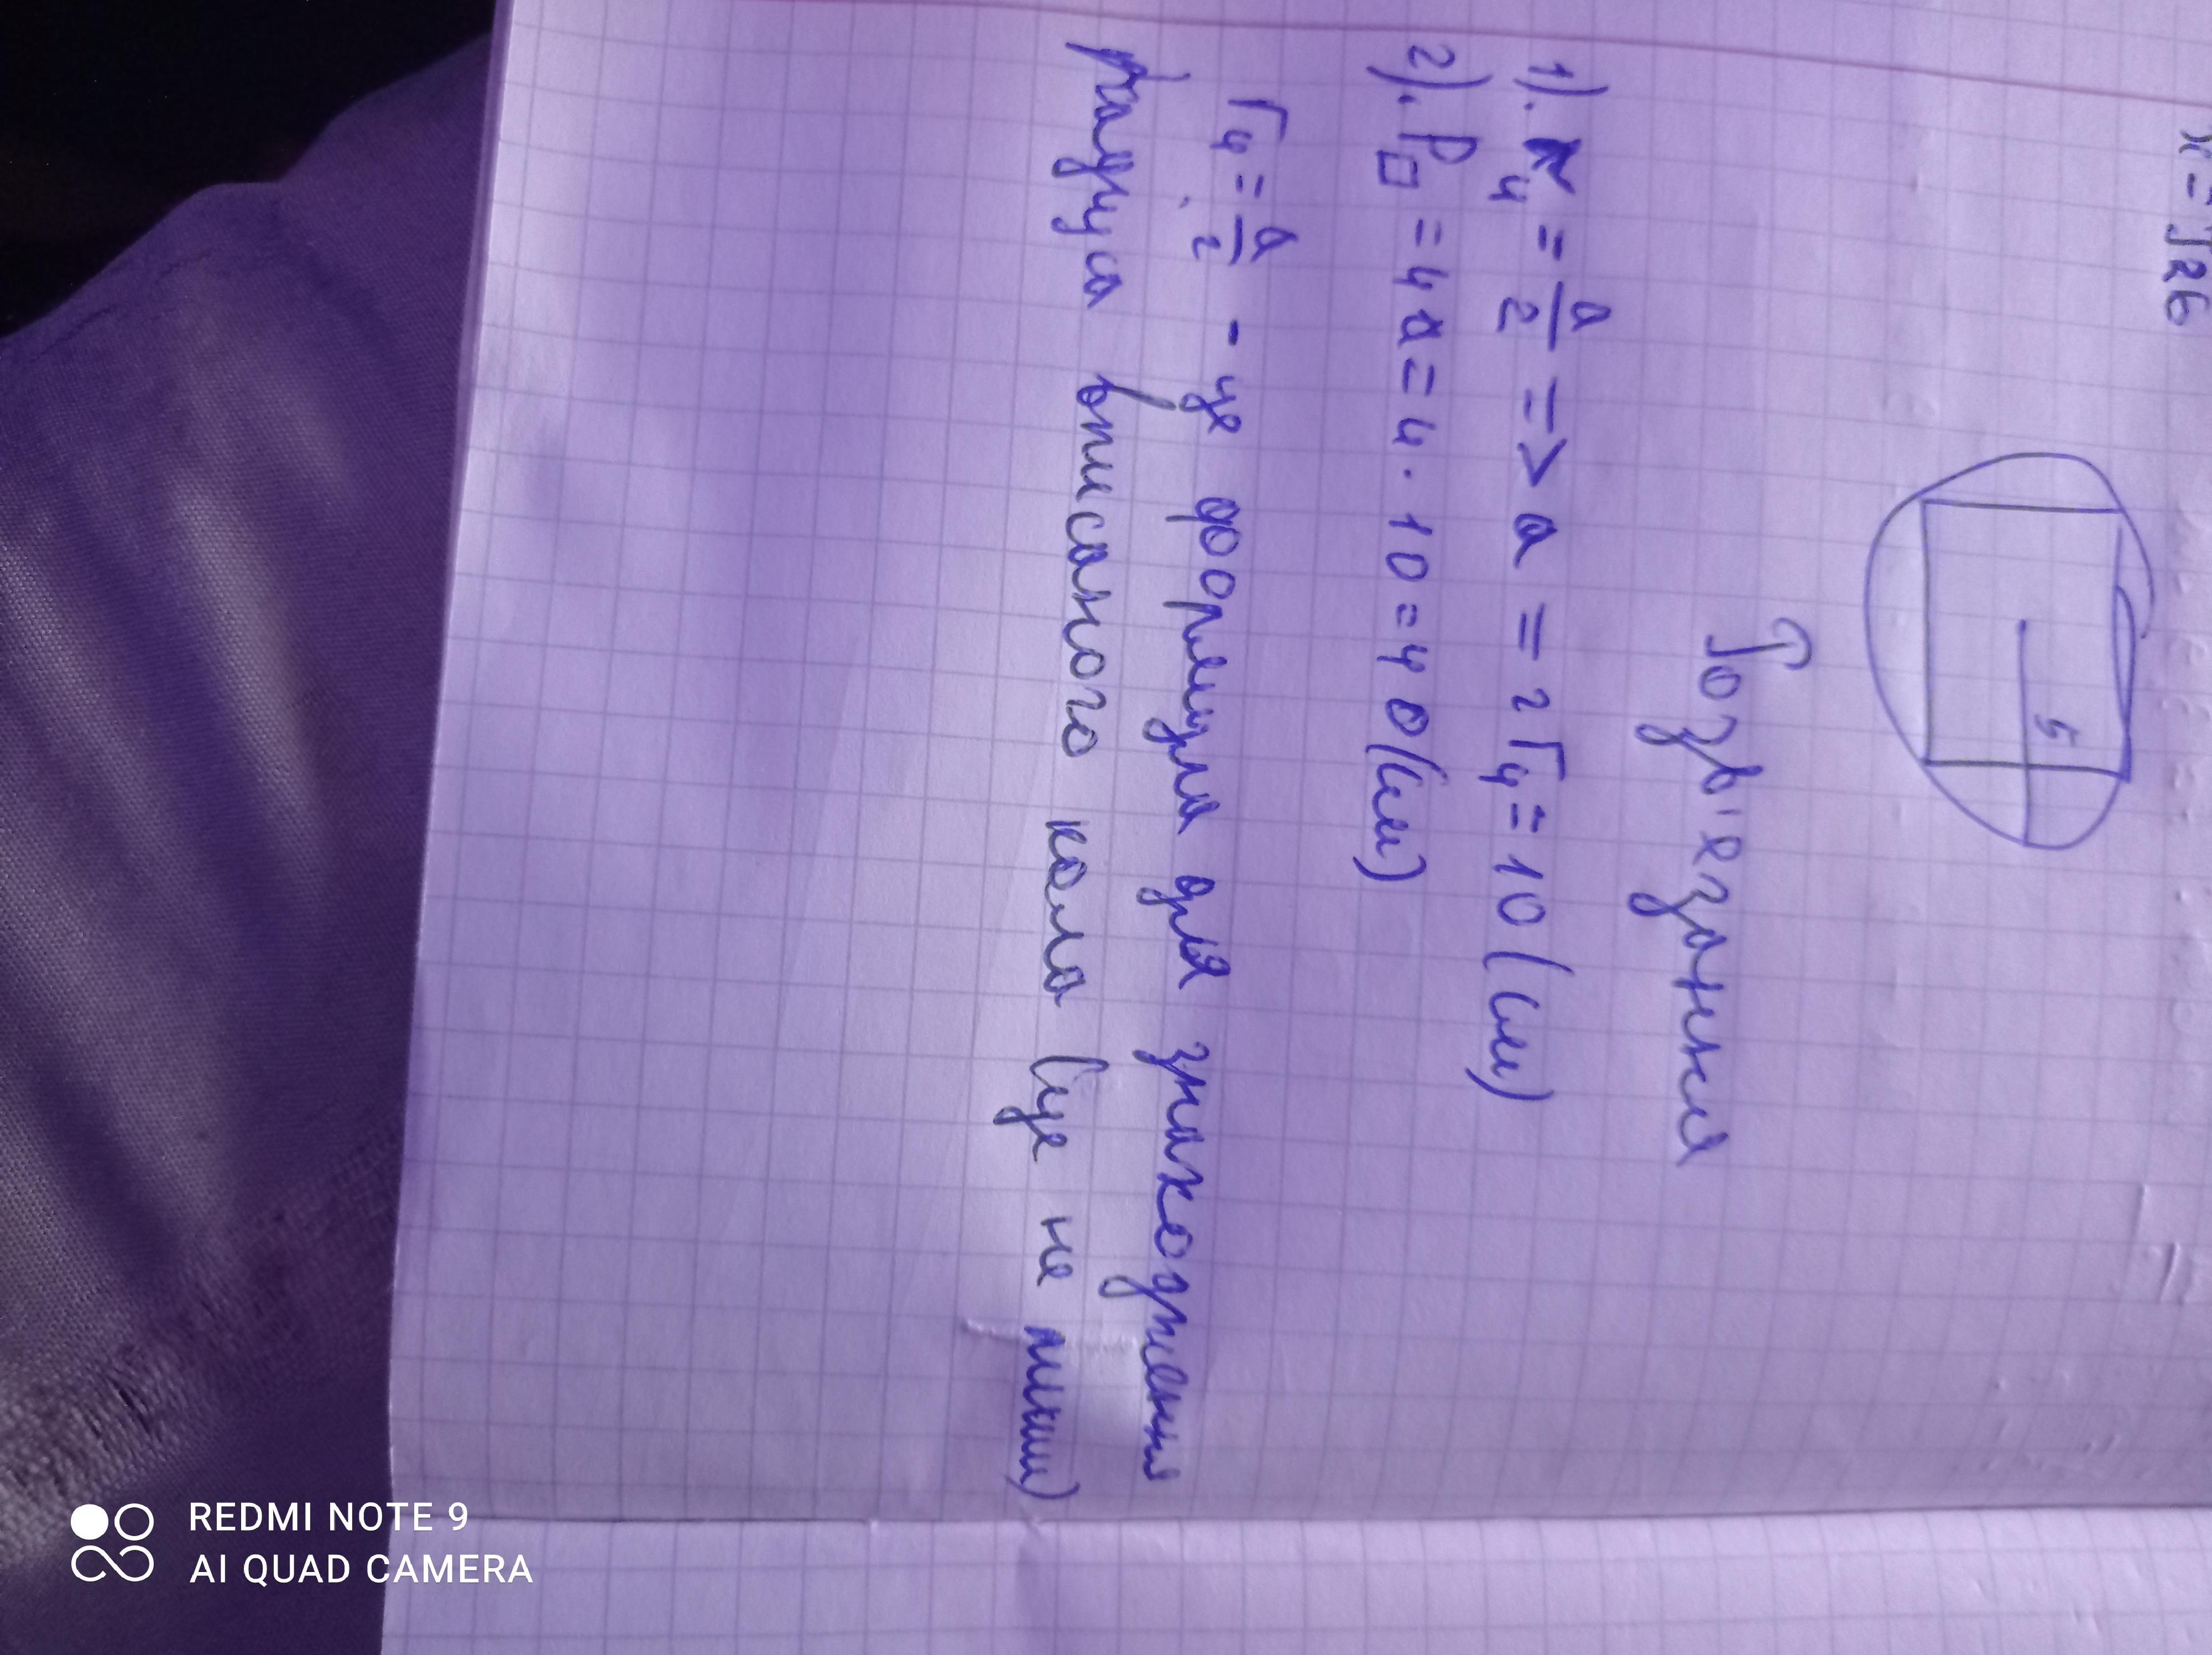 x=√26
5
Розв'язання
1). r₄ = a/2 => a = 2r₄ = 10 (см)
2). P□ = 4a = 4 · 10 = 40 (см)
r₄ = a/2 - це формула для знаходження
радіуса описаного кола (це не пиши)
REDMI NOTE 9
AI QUAD CAMERA